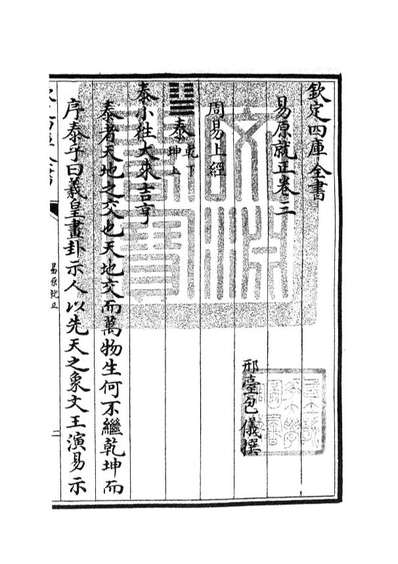 欽定四庫全書
易原就正卷三
邢臺包儀撰
周易上經
䷊泰 乾下 坤上
泰小往大來吉亨
泰者天地之交也天地交而萬物生何不繼乾坤而
序泰乎曰羲皇畫卦示人以先天之象文王演易示
易原就正